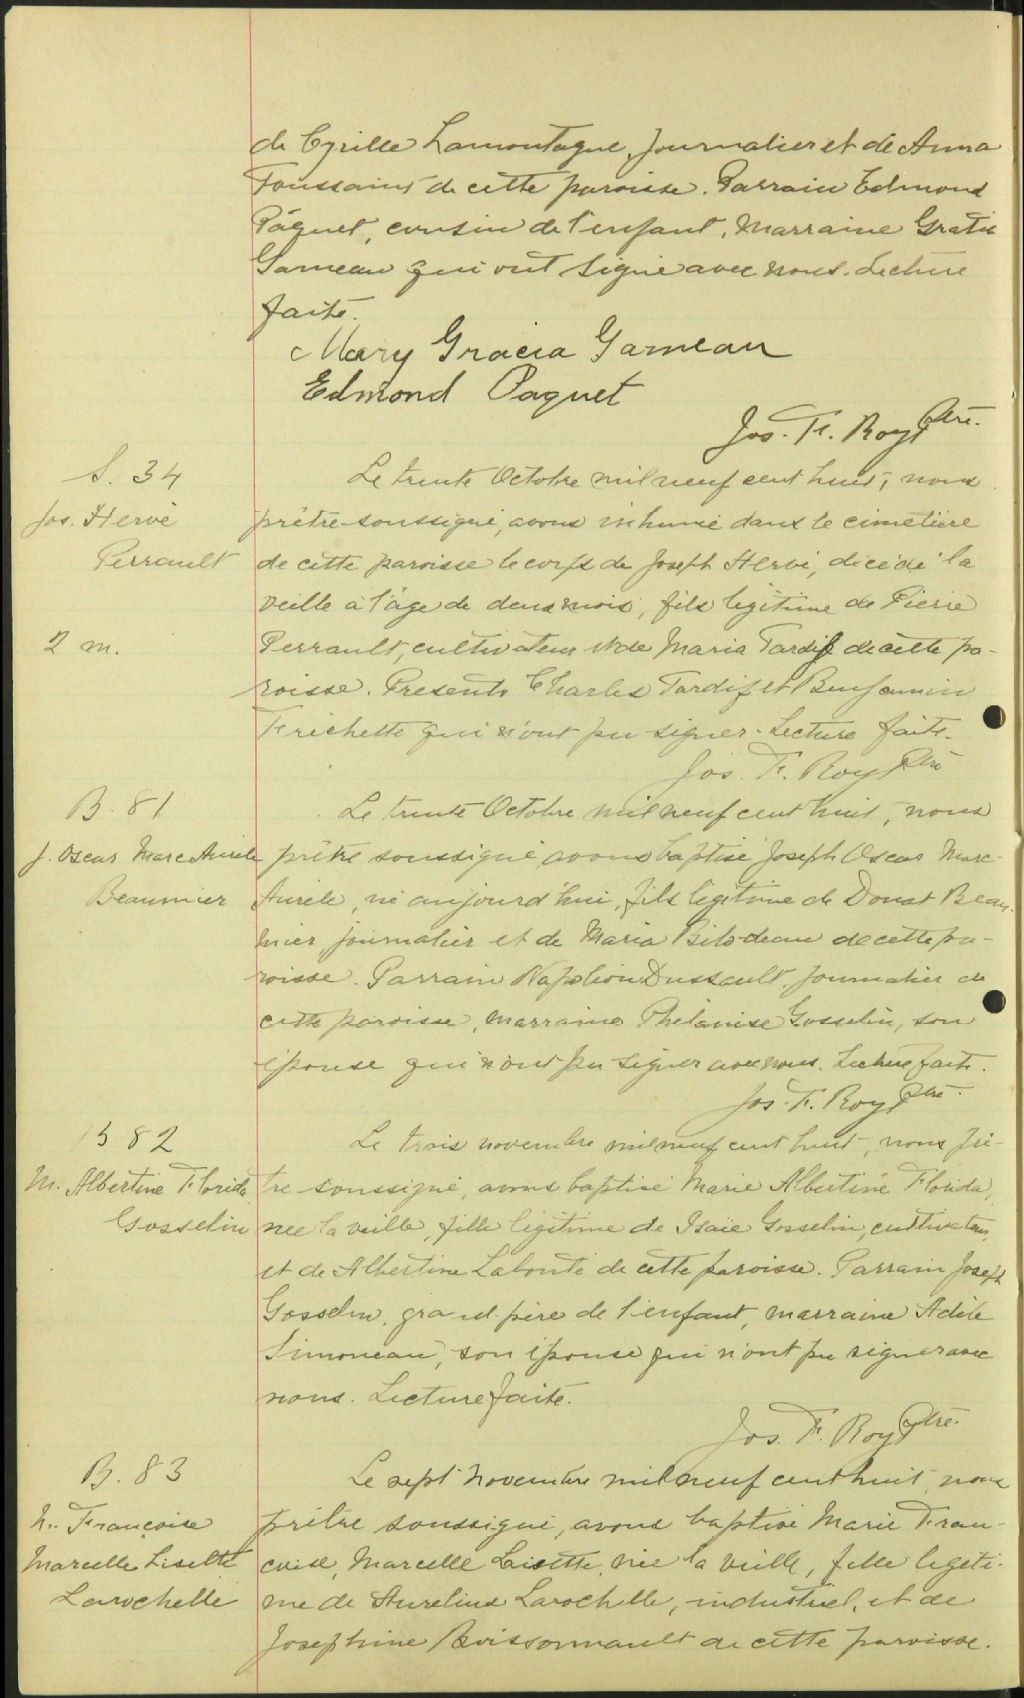 de Cyrille Lamontagne, journalier et de Anna
Toussaint de cette paroisse. Parrain Edmond
Pâquet, cousin de l'enfant, marraine Gratia
Garneau qui ont signé avec nous. Lecture
faite.
Mary Gracia Garneau
Edmond Paquet
Jos. F. Roy Ptre.
S. 34
Jos. Hervé
Perrault
2 m.
Le trente Octobre mil neuf cent huit, nous
prêtre soussigné, avons inhumé dans le cimetière
de cette paroisse le corps de Joseph Hervé, décédé la
veille à l'âge de deux mois, fils légitime de Pierre
Perrault, cultivateur et de Maria Tardif de cette pa-
roisse. Présents Charles Tardif et Benjamin
Frichette qui n'ont pu signer. Lecture faite.
Jos. F. Roy Ptre
B. 81
J. Oscar Marc Aurèle
Beaumier
Le trente Octobre mil neuf cent huit, nous
prêtre soussigné avons baptisé Joseph Oscar Marc-
Aurèle, né aujourd'hui, fils légitime de Donat Beau-
mier, journalier et de Maria Bilodeau de cette pa-
roisse. Parrain Napoléon Dussault, journalier de
cette paroisse, marraine Phelanise Gosselin, son
épouse qui n'ont pu signer avec nous. Lecture faite.
Jos. F. Roy Ptre.
B 82
M. Albertine Florida
Gosselin
Le trois novembre mil neuf cent huit, nous prê-
tre soussigné, avons baptisé Marie Albertine Florida,
née la veille, fille légitime de Isaïe Gosselin, cultivateur,
et de Albertine Labonté de cette paroisse. Parrain Joseph
Gosselin, grand-père de l'enfant, marraine Adèle
Simoneau, son épouse qui n'ont pu signer avec
nous. Lecture faite.
Jos. F. Roy Ptre.
B. 83
M. Françoise
Marcelle Lisette
Larochelle
Le sept Novembre mil neuf cent huit, nous
prêtre soussigné, avons baptisé Marie Fran-
coise, Marcelle Lisette, née la veille, fille légiti-
me de Aurelius Larochelle, industriel, et de
Josephine Boissonnault de cette paroisse.